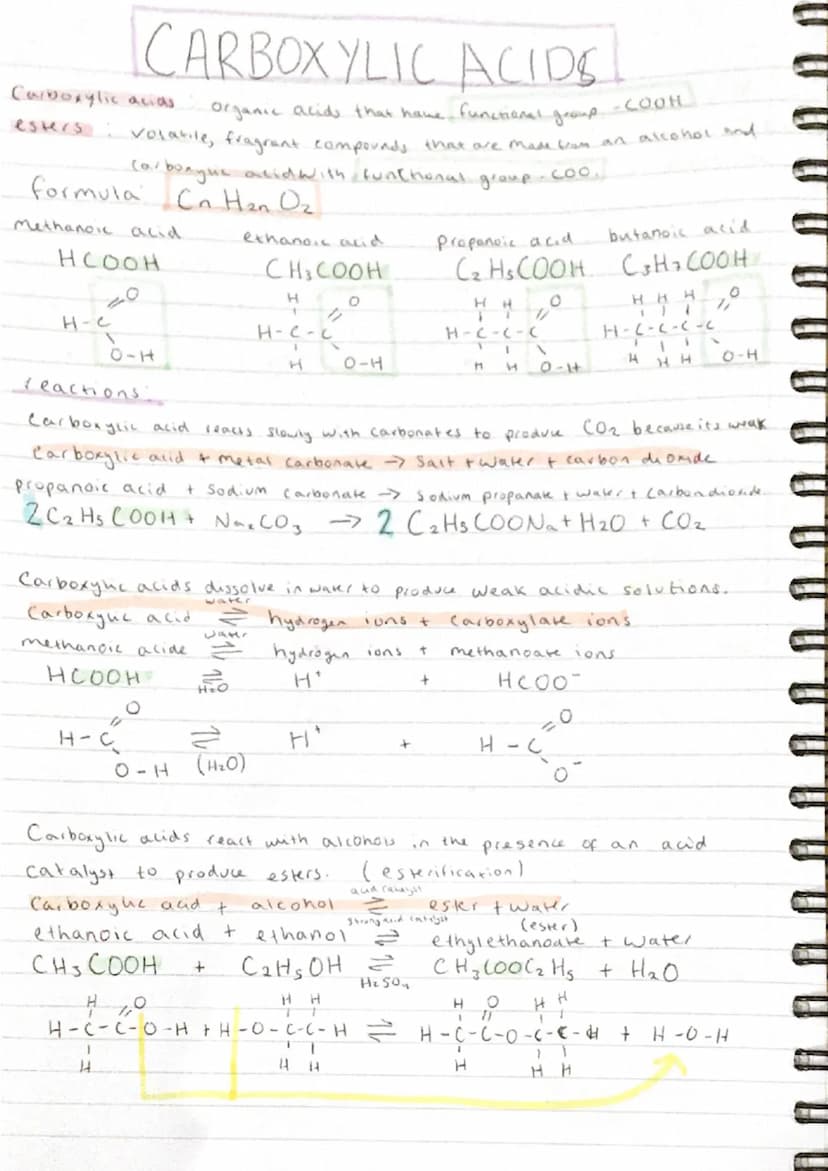 CARBOXYLIC ACIDS
Carboxylic acids : organic acids that have functional group -COOH
esters : volatile, fragrant compounds that are made from an alcohol and
carboxylic acid with functional group -COO.
formula CnH2nO2
methanoic acid ethanoic acid propanoic acid butanoic acid
HCOOH CH3COOH C2H5COOH C3H7COOH
H H H H H H O
O O O
H-C H-C-C H-C-C-C H-C-C-C-C
O-H H O-H H H O-H H H H O-H
reactions:
Carboxylic acid reacts slowly with carbonates to produce CO2 because its weak
Carboxylic acid + metal carbonate → salt + water + carbon dioxide
propanoic acid + sodium carbonate → sodium propanate + water + carbon dioxide
2C2H5COOH + Na2CO3 → 2 C2H5COONa + H2O + CO2
Carboxylic acids dissolve in water to produce weak acidic solutions.
water
Carboxylic acid ⇌ hydrogen ions + carboxylate ions
water
methanoic acide ⇌ hydrogen ions + methanoate ions
HCOOH ⇌ H+ + HCOO-
H2O
O O
H-C ⇌ H+ + H-C
O-H (H2O) O-
Carboxylic acids react with alcohols in the presence of an acid
catalyst to produce esters. (esterification)
acid catalyst
Carboxylic acid + alcohol ⇌ ester + water
strong acid catalyst (ester)
ethanoic acid + ethanol ⇌ ethylethanoate + water
CH3COOH + C2H5OH ⇌ CH3COOC2H5 + H2O
H2SO4
H O H H H O H H
H-C-C-O-H + H-O-C-C-H ⇌ H-C-C-O-C-C-H + H-O-H
H H H H H H